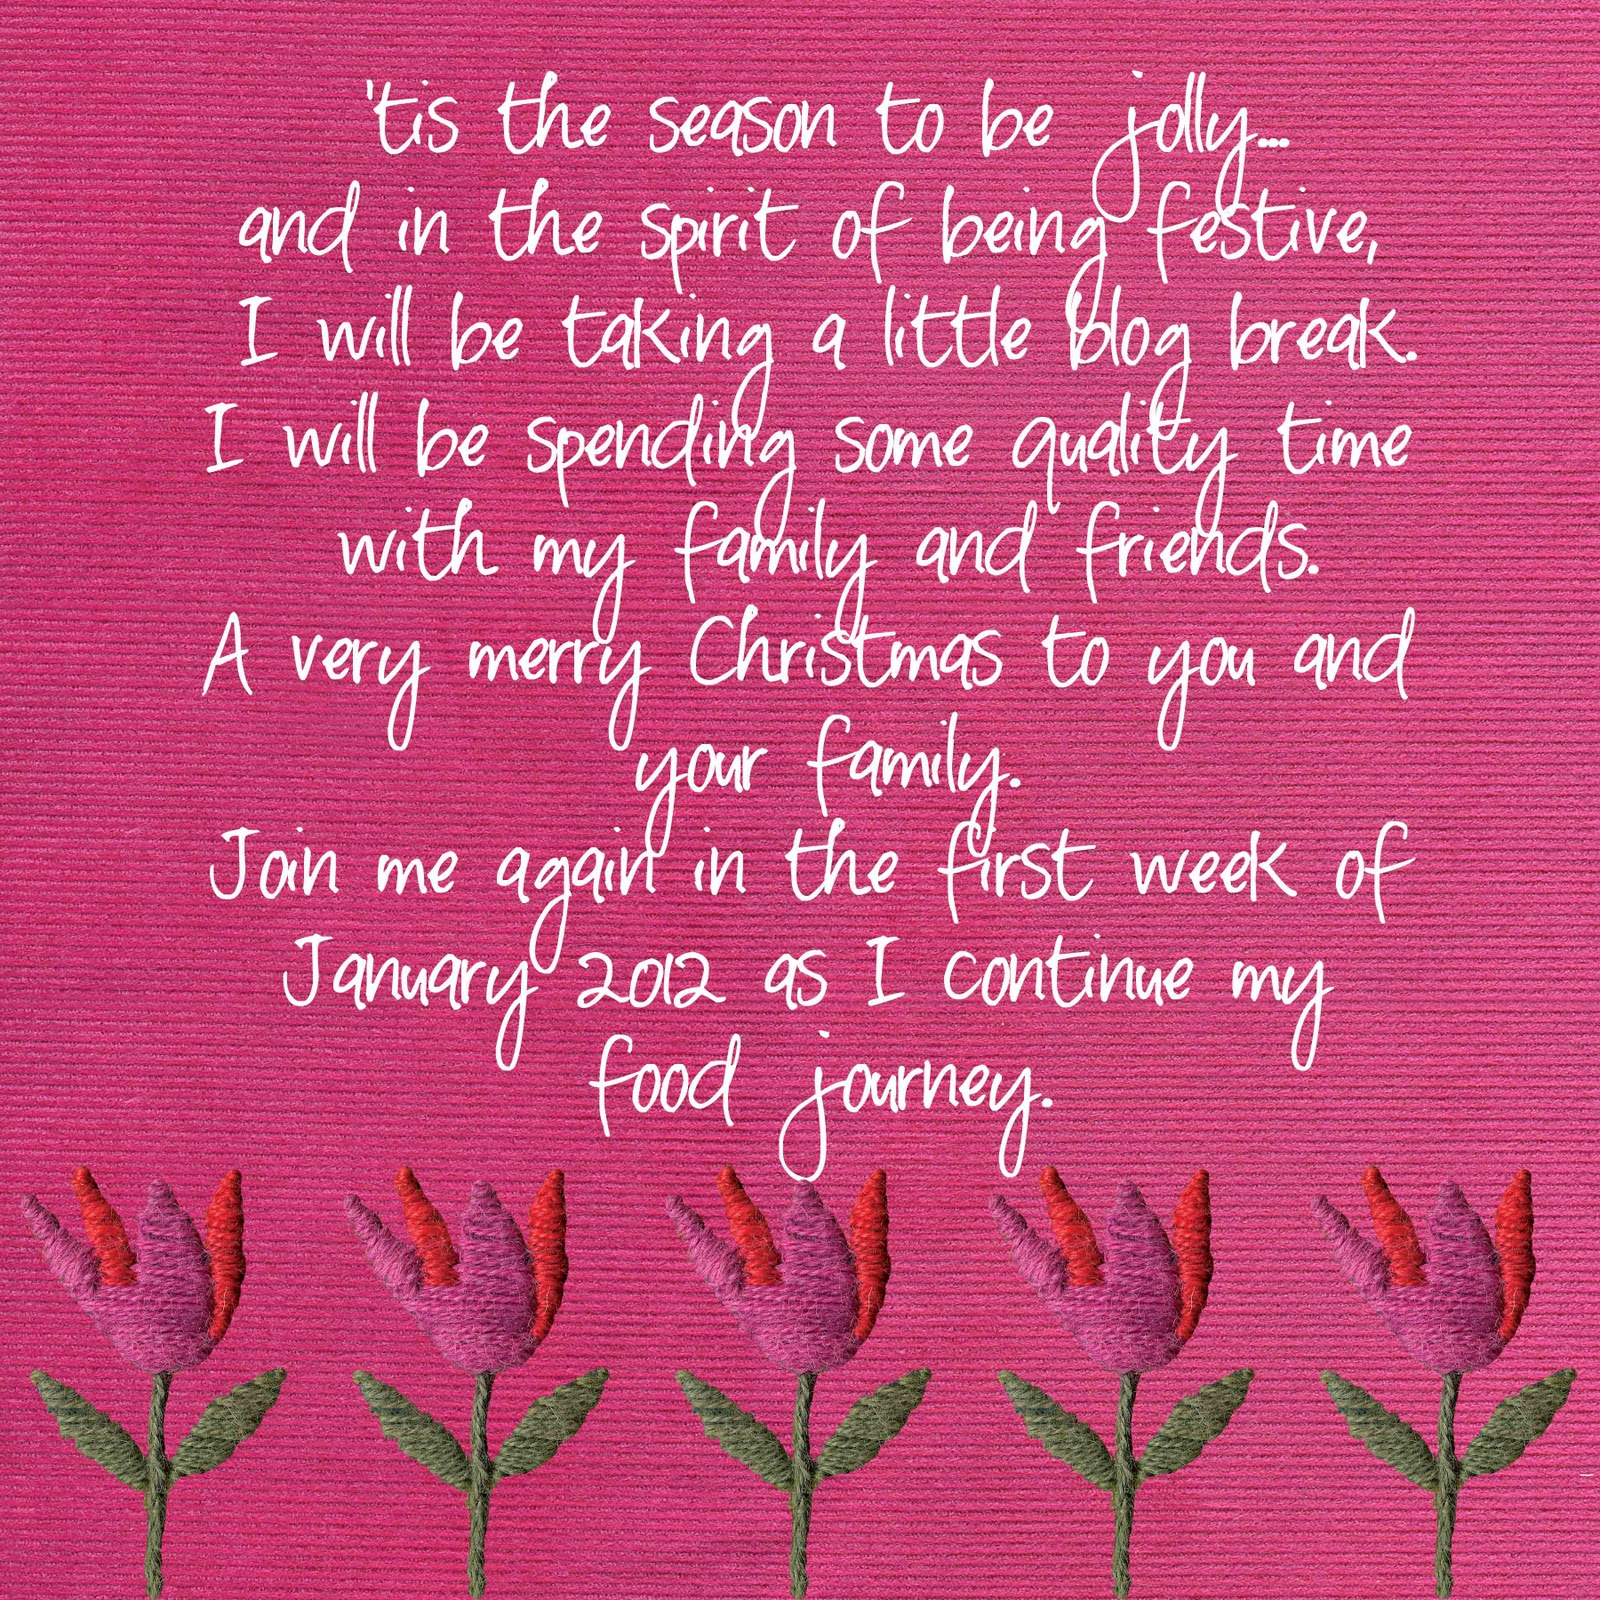 'tis the season to be jolly...
and in the spirit of being festive,
I will be taking a little blog break.
I will be spending some quality time
with my family and friends.
A very merry Christmas to you and
your family.
Join me again in the first week of
January 2012 as I continue my
food journey.